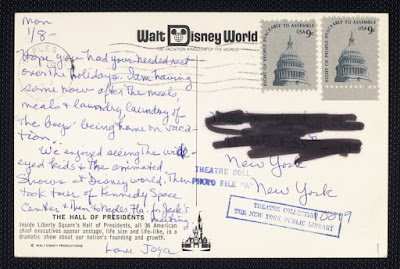 Mon
1/8-
Walt Disney World
THE VACATION KINGDOM OF THE WORLD
Hope you had your needed rest
over the holidays. I am having
some now after the meals,
meals & laundry, laundry of
'the Boys' being home on vaca-
tion.
We enjoyed seeing the wide
eyed kids & the animated
Shows at Disney World. Then
took tour of Kennedy Space
Center & then to Naples Fla. for Jack's meeting
Love Joya
THE HALL OF PRESIDENTS
Inside Liberty Square's Hall of Presidents, all 36 American
chief executives appear onstage, life size and life-like, in a
dramatic show about our nation's founding and growth.
© WALT DISNEY PRODUCTIONS
PEOPLE PEACEABLY TO ASSEMBLE
USA 9c
RIGHT OF PEOPLE PEACEABLY TO ASSEMBLE
USA 9c
New York
THEATRE COLL
PHOTO FILE "A"
New York
THEATRE COLLECTION
THE NEW YORK PUBLIC LIBRARY